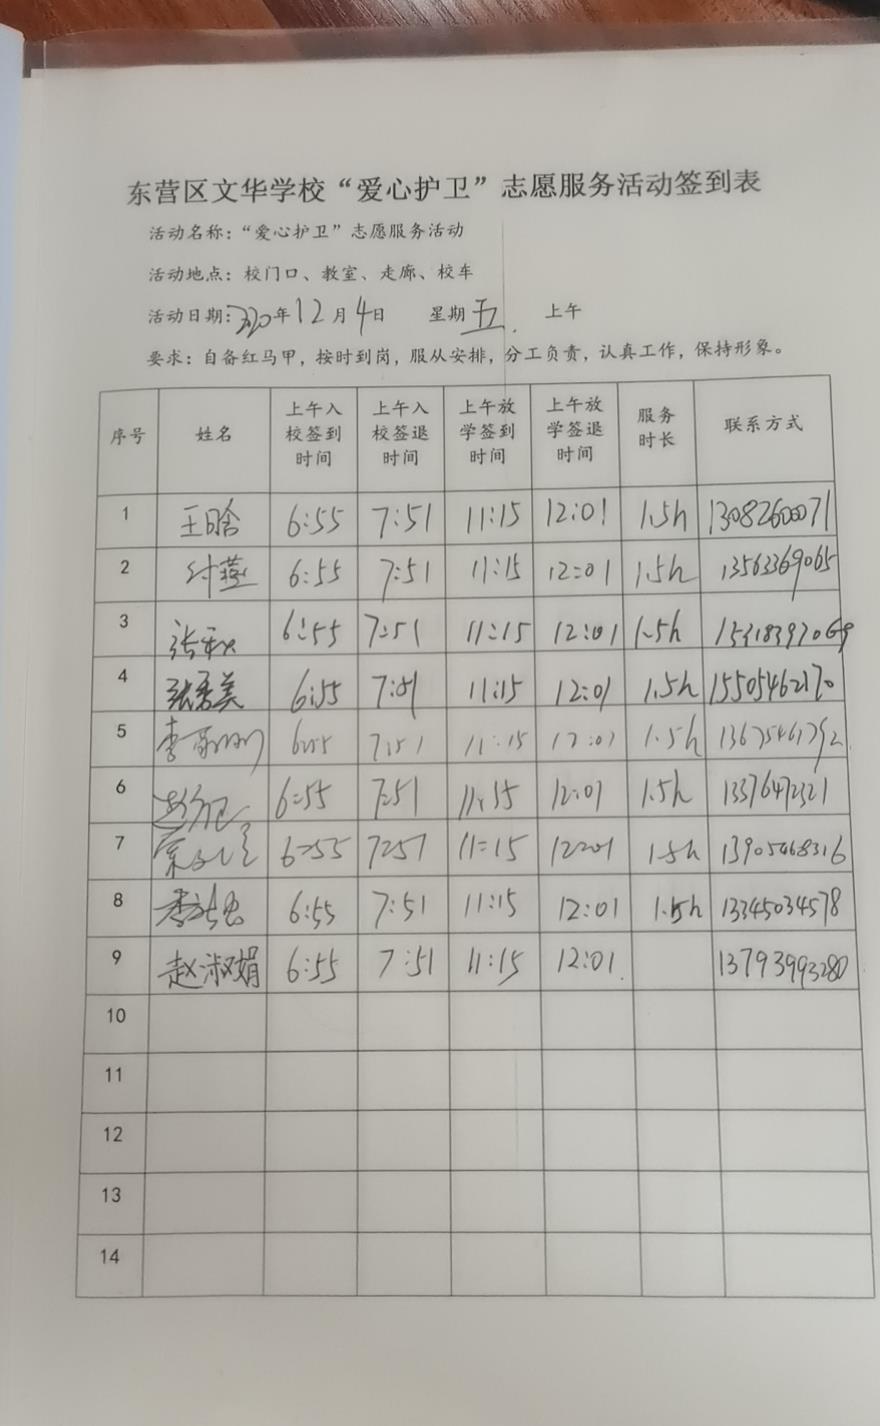 东营区文华学校“爱心护卫”志愿服务活动签到表
活动名称：“爱心护卫”志愿服务活动
活动地点：校门口、教室、走廊、校车
活动日期：2020年12月4日 星期五 上午
要求：自备红马甲，按时到岗，服从安排，分工负责，认真工作，保持形象。
序号 姓名 上午入校签到时间 上午入校签退时间 上午放学签到时间 上午放学签退时间 服务时长 联系方式
1 王晗 6:55 7:51 11:15 12:01 1.5h 13082600071
2 付燕 6:55 7:51 11:15 12:01 1.5h 13563369065
3 6:55 7:51 11:15 12:01 1.5h
4 张秀美 6:55 7:51 11:15 12:01 1.5h 15505462170
5 6:55 7:51 11:15 12:01 1.5h
6 6:55 7:51 11:15 12:01 1.5h 13376472321
7 6:55 7:51 11:15 12:01 1.5h 13905468316
8 6:55 7:51 11:15 12:01 1.5h 13345034578
9 赵淑娟 6:55 7:51 11:15 12:01 13793993280
10
11
12
13
14